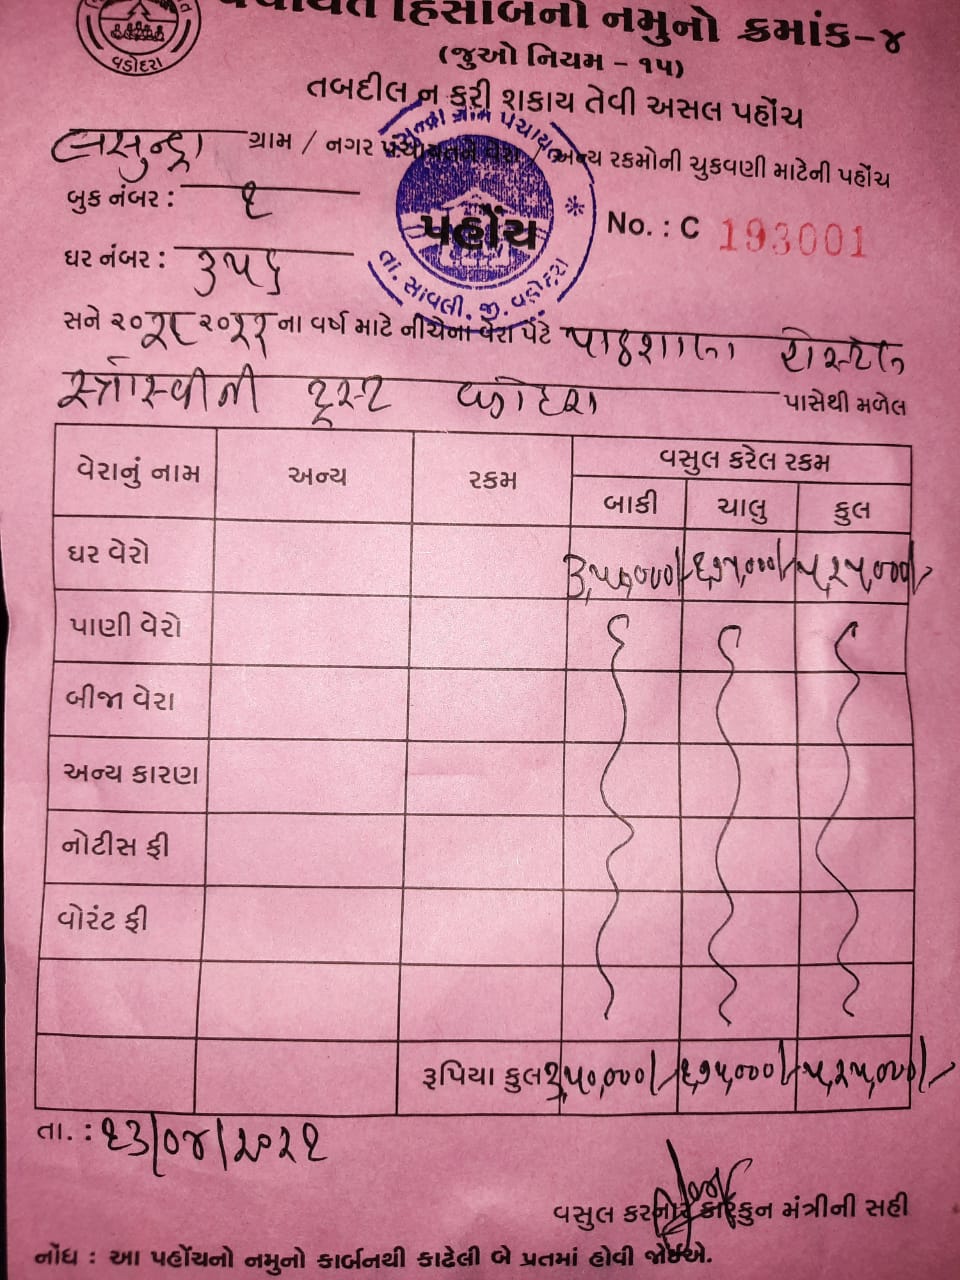 હિસાબનો નમુનો ક્રમાંક-૪
(જુઓ નિયમ - ૧૫)
વડોદરા
તબદીલ ન કરી શકાય તેવી અસલ પહોંચ
લસુન્દ્રા ગ્રામ / નગર પંચાયતને વેરા / અન્ય રકમોની ચુકવણી માટેની પહોંચ
બુક નંબર : ૧
પહોંચ
No. : C 193001
તા. સાવલી. જી. વડોદરા
ઘર નંબર : ૩૫૬
સને ૨૦૨૧ ૨૦૨૨ ના વર્ષ માટે નીચેના વેરા પેટે પાઠશાળા
ટ્રસ્ટ પાસેથી મળેલ
વેરાનું નામ અન્ય રકમ વસુલ કરેલ રકમ
બાકી ચાલુ કુલ
ઘર વેરો ૩,૫૦,૦૦૦/- ૧,૭૫,૦૦૦/- ૫,૨૫,૦૦૦/-
પાણી વેરો
બીજા વેરા
અન્ય કારણ
નોટીસ ફી
વોરંટ ફી
રૂપિયા કુલ ૩,૫૦,૦૦૦/- ૧,૭૫,૦૦૦/- ૫,૨૫,૦૦૦/-
તા. : ૧૩/૦૪/૨૦૨૧
વસુલ કરનાર કારકુન મંત્રીની સહી
નોંધ : આ પહોંચનો નમુનો કાર્બનથી કાઢેલી બે પ્રતમાં હોવી જોઈએ.